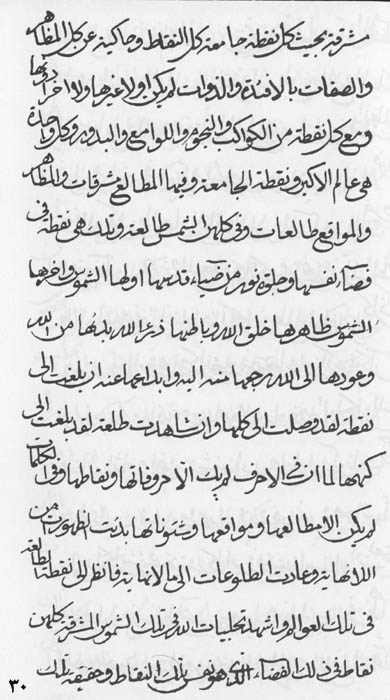 مشرقة بحيث كل نقطة جامعة كل النقاط وحاكية عن كل المظاهر
والصفات بالأفئدة والذوات لم يكن اولا غيرها ولا آخرا دونها
ومع كل نقطة من الكواكب والنجوم واللوامع والبدور وكل واحدة
هي عالم الاكبر ونقطة الجامعة وفيها المطالع مشرقات والمظاهر
والمواقع طالعات وفي كلهن الشمس طالعة وتلك هي نقطة في
فضاء نفسها وحلوة نور من ضياء قدسها اولها الشموس وآخرها
الشموس ظاهرها خلق الله وباطنها ذرء الله بدئها من الله
وعودها الى الله رجعها منه البدو ابداعها عنه ان بلغت الى
نقطة لقد وصلت الى كلها وان شاهدت طلعة لقد بلغت الى
كنهها لما ان في الاحرف لم يك الا حروفاتها ونقاطها وفي الكلمات
لم يكن الا مطالعها ومواقعها وشئوناتها بدئت الظهورات من
اللانهاية وعادت الطلوعات الى ما لا نهاية فانظر الى نقطة الطالعة
في تلك العوالم واشهد تجليات الله في تلك الشموس المشرقة كلهن
نقاط في ذلك الفضاء الذي هو نفس تلك النقاط وحقيقة تلك
٣٠